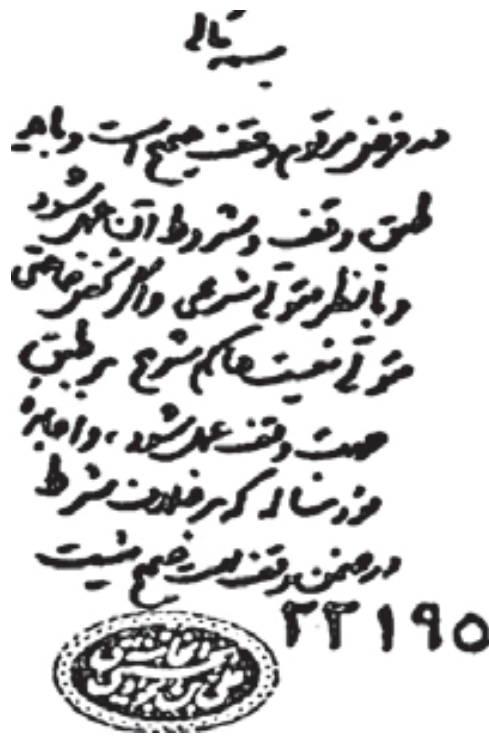 بسمه تعالی
در فرض مرقوم وقف صحیح است و باید
طبق وقف و شروط آن عمل شود
و با نظر متولی شرعی و اگر شخص خاصی
متولی نیست حاکم شرع بر طبق
جهت وقف عمل شود، و اجاره
مورد سئواله که بر خلاف شرط
در ضمن وقف است صحیح نیست
۲۲۱۹۵